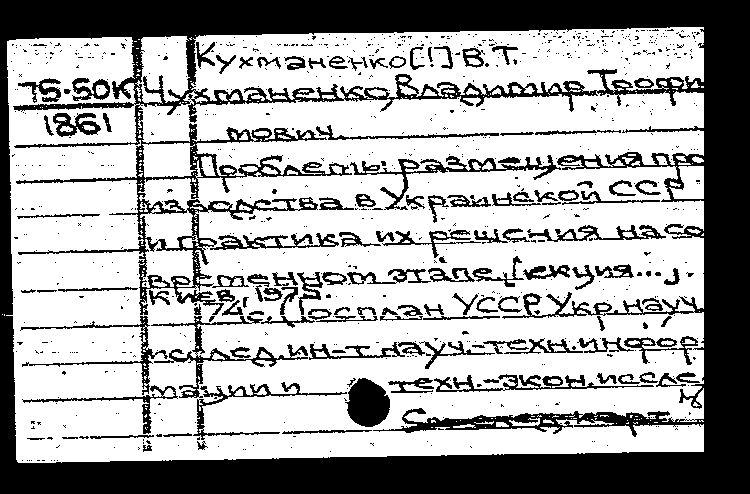 Кухманенко[!] В.Т.
75-50К Чухманенко, Владимир Трофи
1861
мович.
Проблемы размещения про
изводства в Украинской ССР
и практика их решения на со
временном этапе. [Лекция...].
Киев, 1975.
74с. (Госплан УССР. Укр. науч.
исслед. ин-т науч.-техн. инфор-
мации и техн.-экон. иссле
См. след. карт.